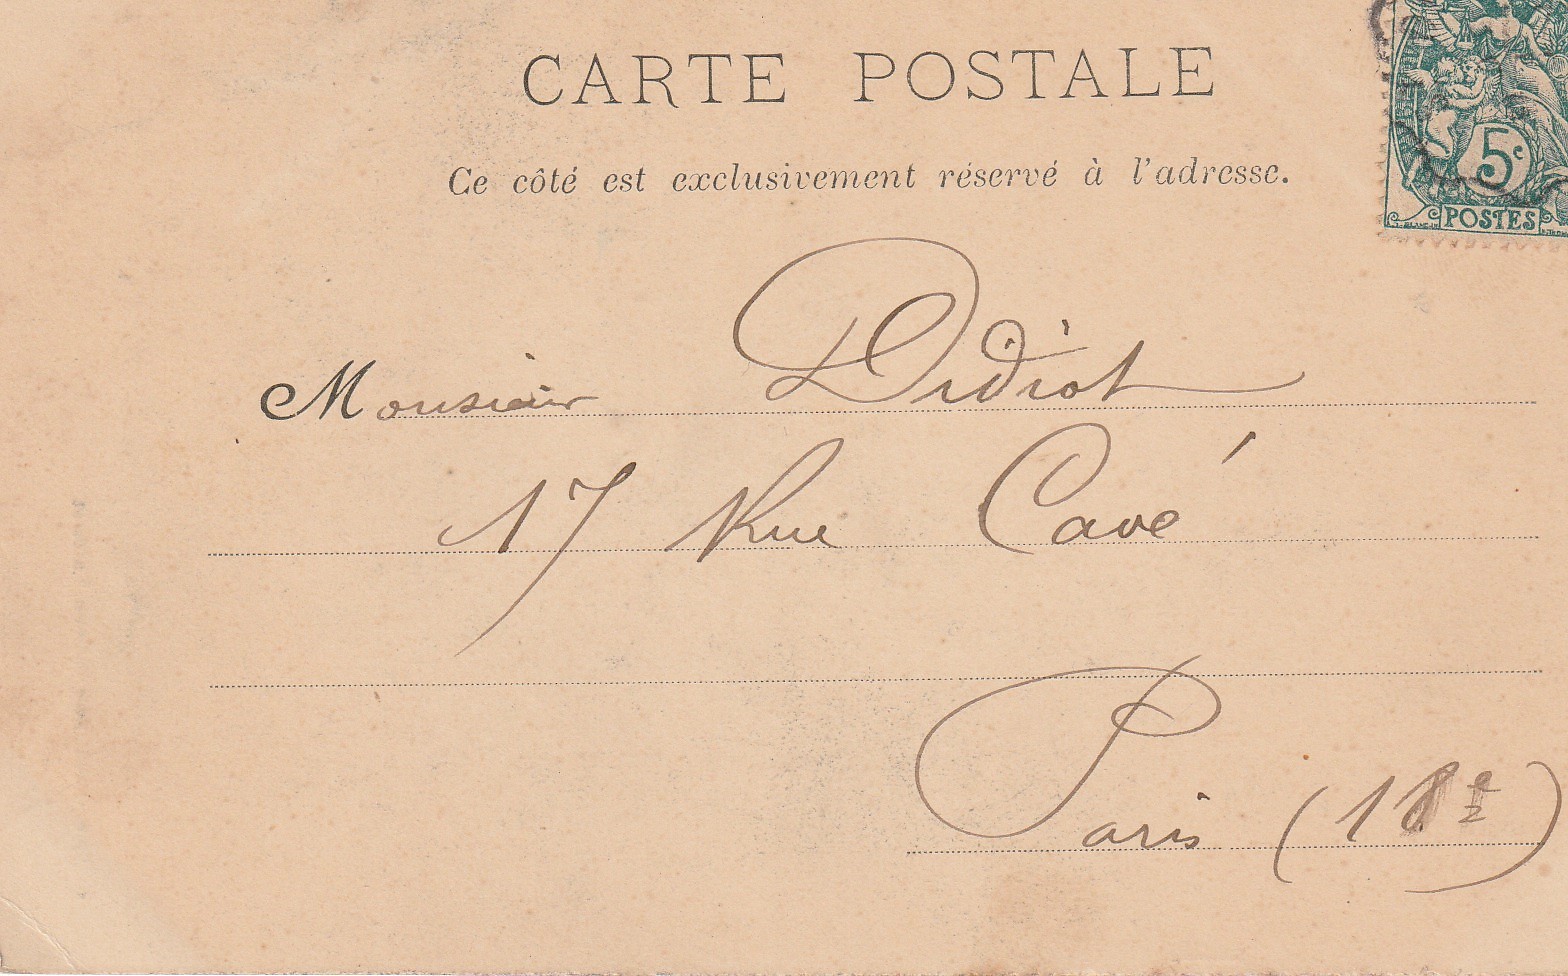 CARTE POSTALE
Ce côté est exclusivement réservé à l'adresse.
5c
POSTES
Monsieur Didiot
17 Rue Cavé
Paris (18e)